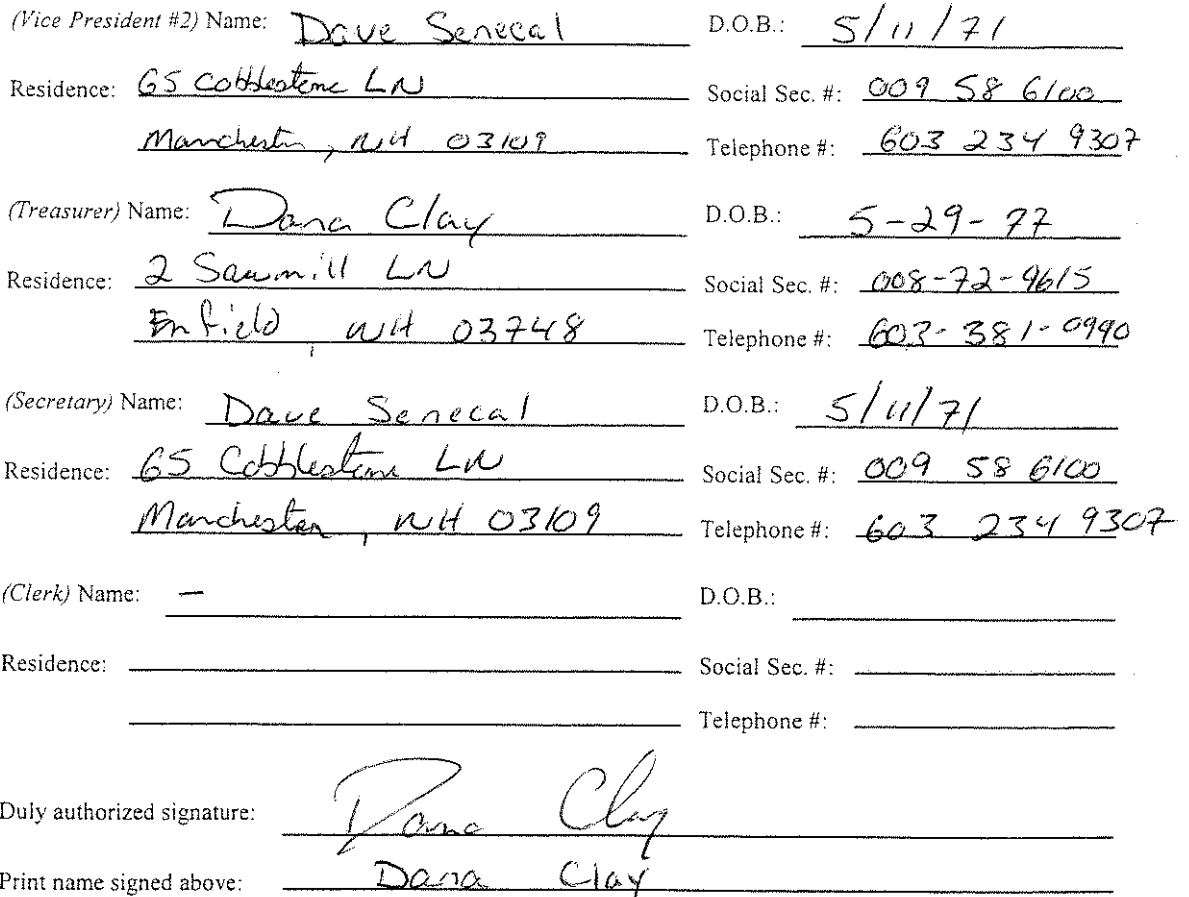 (Vice President #2) Name: Dave Senecal D.O.B.: 5/11/71
Residence: 65 Cobblestone LN Social Sec. #: 009 58 6100
Manchester, NH 03109 Telephone #: 603 234 9307
(Treasurer) Name: Dana Clay D.O.B.: 5-29-77
Residence: 2 Sawmill LN Social Sec. #: 008-72-9615
Enfield, NH 03748 Telephone #: 603-381-0990
(Secretary) Name: Dave Senecal D.O.B.: 5/11/71
Residence: 65 Cobblestone LN Social Sec. #: 009 58 6100
Manchester, NH 03109 Telephone #: 603 234 9307
(Clerk) Name: — D.O.B.:
Residence: Social Sec. #:
Telephone #:
Duly authorized signature: Dana Clay
Print name signed above: Dana Clay